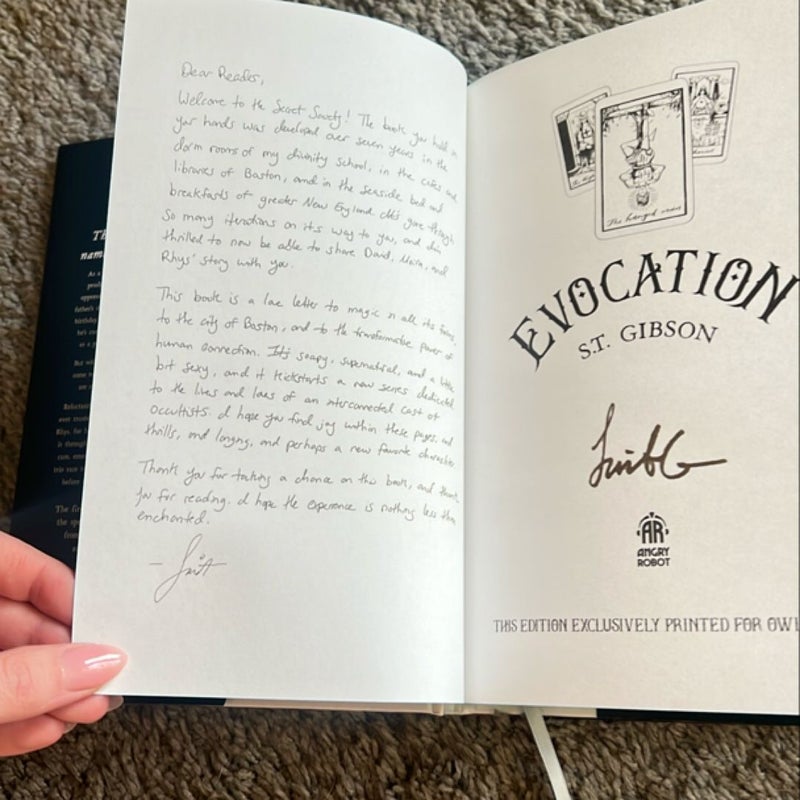 Dear Reader,
Welcome to the Secret Society! The book you hold in
your hands was developed over seven years in the
dorm rooms of my divinity school, in the cafes and
libraries of Boston, and in the seaside bed and
breakfasts of greater New England. It's gone through
so many iterations on its way to you, and I'm
thrilled to now be able to share David, Moira, and
Rhys' story with you.
This book is a love letter to magic in all its forms,
to the city of Boston, and to the transformative power of
human connection. It's soapy, supernatural, and a little
bit sexy, and it kickstarts a new series dedicated
to the lives and loves of an interconnected cast of
occultists. I hope you find joy within these pages, and
thrills, and longing, and perhaps a new favorite character.
Thank you for taking a chance on this book, and thank
you for reading. I hope the experience is nothing less than
enchanted.
The hanged
EVOCATION
S.T. GIBSON
AR
ANGRY
ROBOT
THIS EDITION EXCLUSIVELY PRINTED FOR OWL